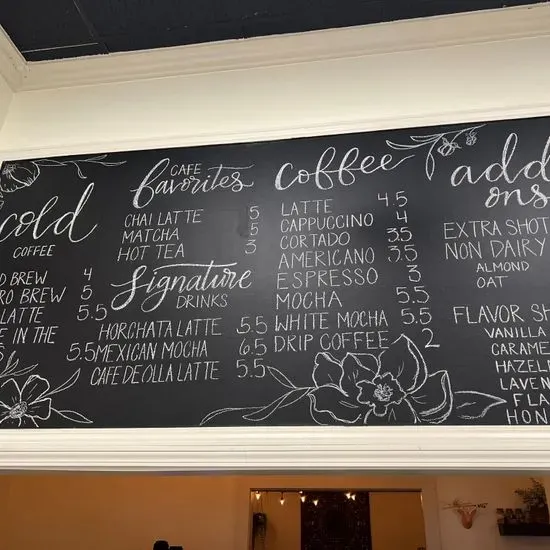 cold
COFFEE
D BREW 4
RO BREW 5
LATTE 5.5
E IN THE
5.5
CAFE
favorites
CHAI LATTE 5
MATCHA 5
HOT TEA 3
Signature
DRINKS
HORCHATA LATTE 5.5
MEXICAN MOCHA 6.5
CAFE DE OLLA LATTE 5.5
Coffee
LATTE 4.5
CAPPUCCINO 4
CORTADO 3.5
AMERICANO 3.5
ESPRESSO 3
MOCHA 5.5
WHITE MOCHA 5.5
DRIP COFFEE 2
add
ons
EXTRA SHOT
NON DAIRY
ALMOND
OAT
FLAVOR SH
VANILLA
CARAME
HAZEL
LAVEN
FLA
HON